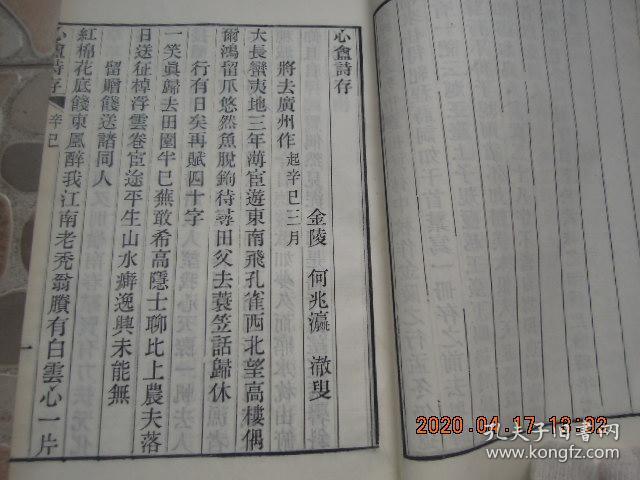 心盦詩存
金陵 何兆瀛 澈叟
將去廣州作 起辛巳三月
大長蠻夷地三年薄宦遊東南飛孔雀西北望高樓偶
爾鴻留爪悠然魚脫鉤待尋田父去蓑笠話歸休
行有日矣再賦四十字
一笑真歸去田園半巳蕪敢希高隱士聊比上農夫落
日送征棹浮雲卷宦途平生山水癖逸興未能無
留贈餞送諸同人
紅棉花底餞東風醉我江南老禿翁賸有白雲心一片
心盦詩存 辛巳
一
2020.04.17
孔夫子旧书网